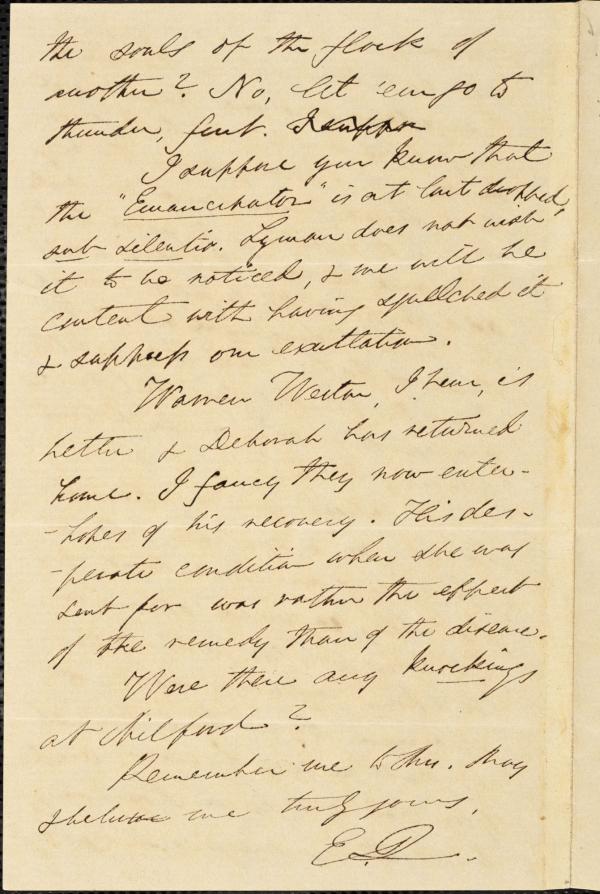 the souls of the flock of
another? No, let 'em go to
thunder, fust. I suppose
I suppose you know that
the "Emancipator" is at last dropped,
sub silentio. Lyman does not wish
it to be noticed, & we will be
content with having squelched it
& suppress our exultation.
Warren Weston, I hear, is
better & Deborah has returned
home. I fancy they now enter-
-hopes of his recovery. His des-
-perate condition when she was
sent for was rather the effect
of the remedy than of the disease.
Were there any knockings
at Milford?
Remember me to Mrs. May
& believe me truly yours,
E. Q.